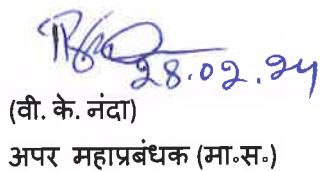 28.02.24
(वी. के. नंदा)
अपर महाप्रबंधक (मा॰स॰)